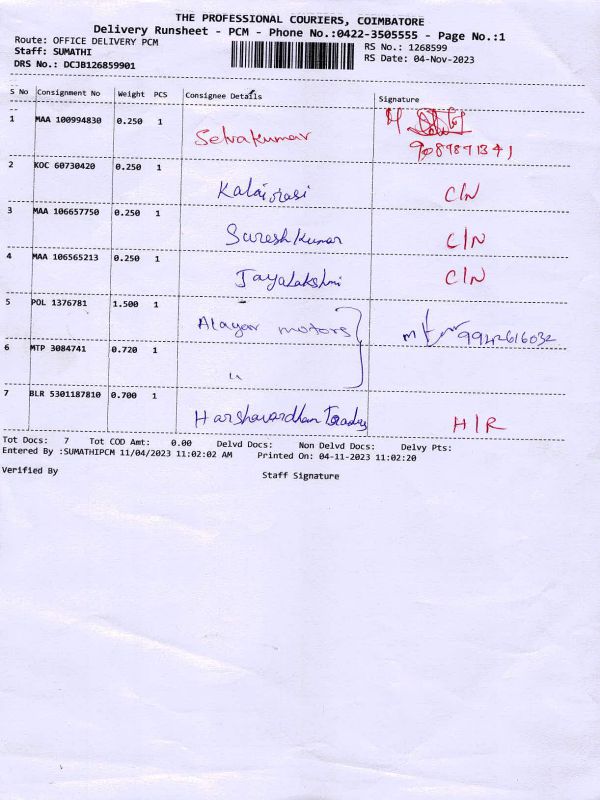 THE PROFESSIONAL COURIERS, COIMBATORE
Delivery Runsheet - PCM - Phone No.:0422-3505555 - Page No.:1
Route: OFFICE DELIVERY PCM RS No.: 1268599
Staff: SUMATHI RS Date: 04-Nov-2023
DRS No.: DCJB126859901
S No Consignment No Weight PCS Consignee Details Signature
1 MAA 100994830 0.250 1 Selvakumar
9089871341
2 KOC 60730420 0.250 1 Kalaivasi C/N
3 MAA 106657750 0.250 1 Suresh Kumar C/N
4 MAA 106565213 0.250 1 Jayalakshmi C/N
5 POL 1376781 1.500 1 Alagar motors 9942616032
6 MTP 3084741 0.720 1 "
7 BLR 5301187810 0.700 1 Harshavardhan Traders H/R
Tot Docs: 7 Tot COD Amt: 0.00 Delvd Docs: Non Delvd Docs: Delvy Pts:
Entered By :SUMATHIPCM 11/04/2023 11:02:02 AM Printed On: 04-11-2023 11:02:20
Verified By Staff Signature